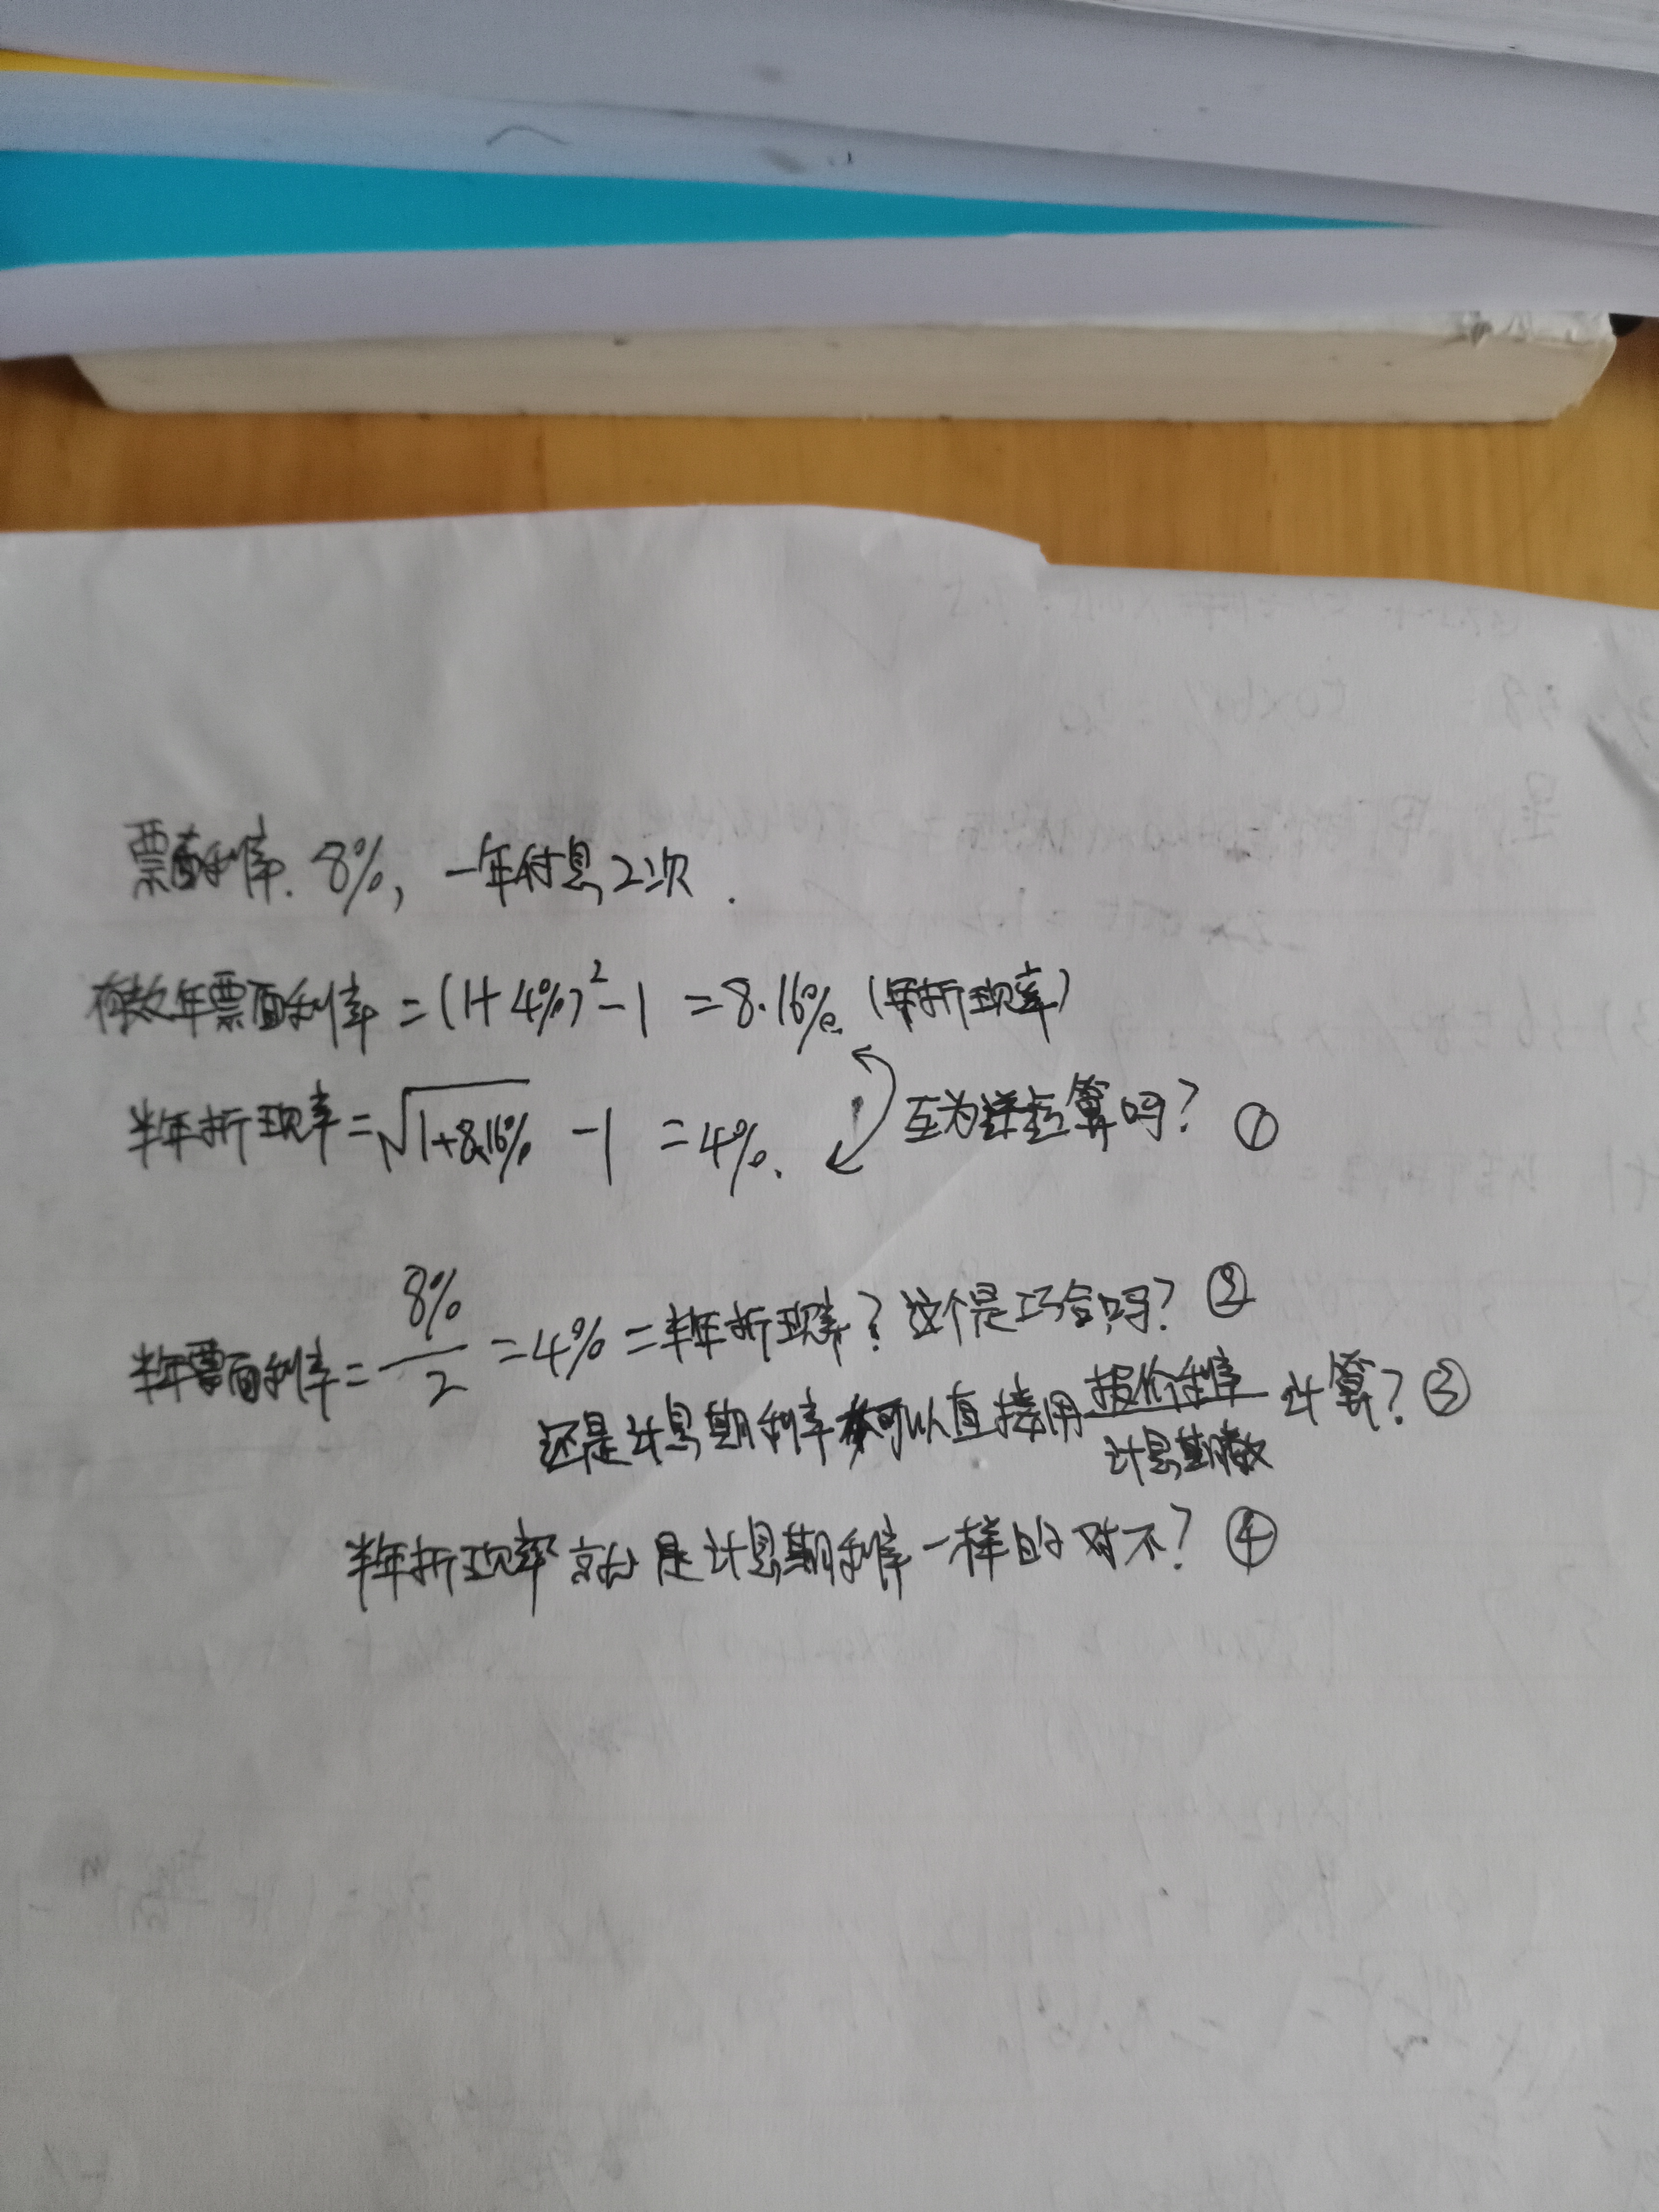 票面利率. 8%, 一年付息2次.
有效年票面利率 = (1+4%)²-1 = 8.16%. (年折现率)
半年折现率 = √1+8.16% -1 = 4%. 互为逆运算吗? ①
半年票面利率 = 8%/2 = 4% = 半年折现率? 这个是巧合吗? ②
还是计息期利率都可以直接用 报价利率/计息期数 计算? ③
半年折现率 就是计息期利率一样的 对不? ④